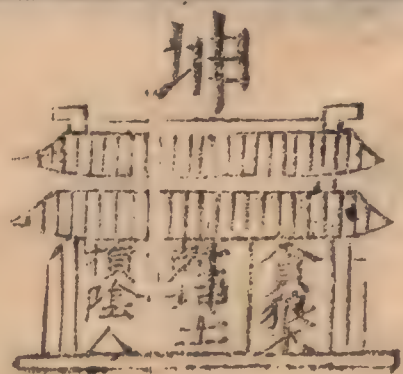 坤
貪狼木
坤土
損陰人